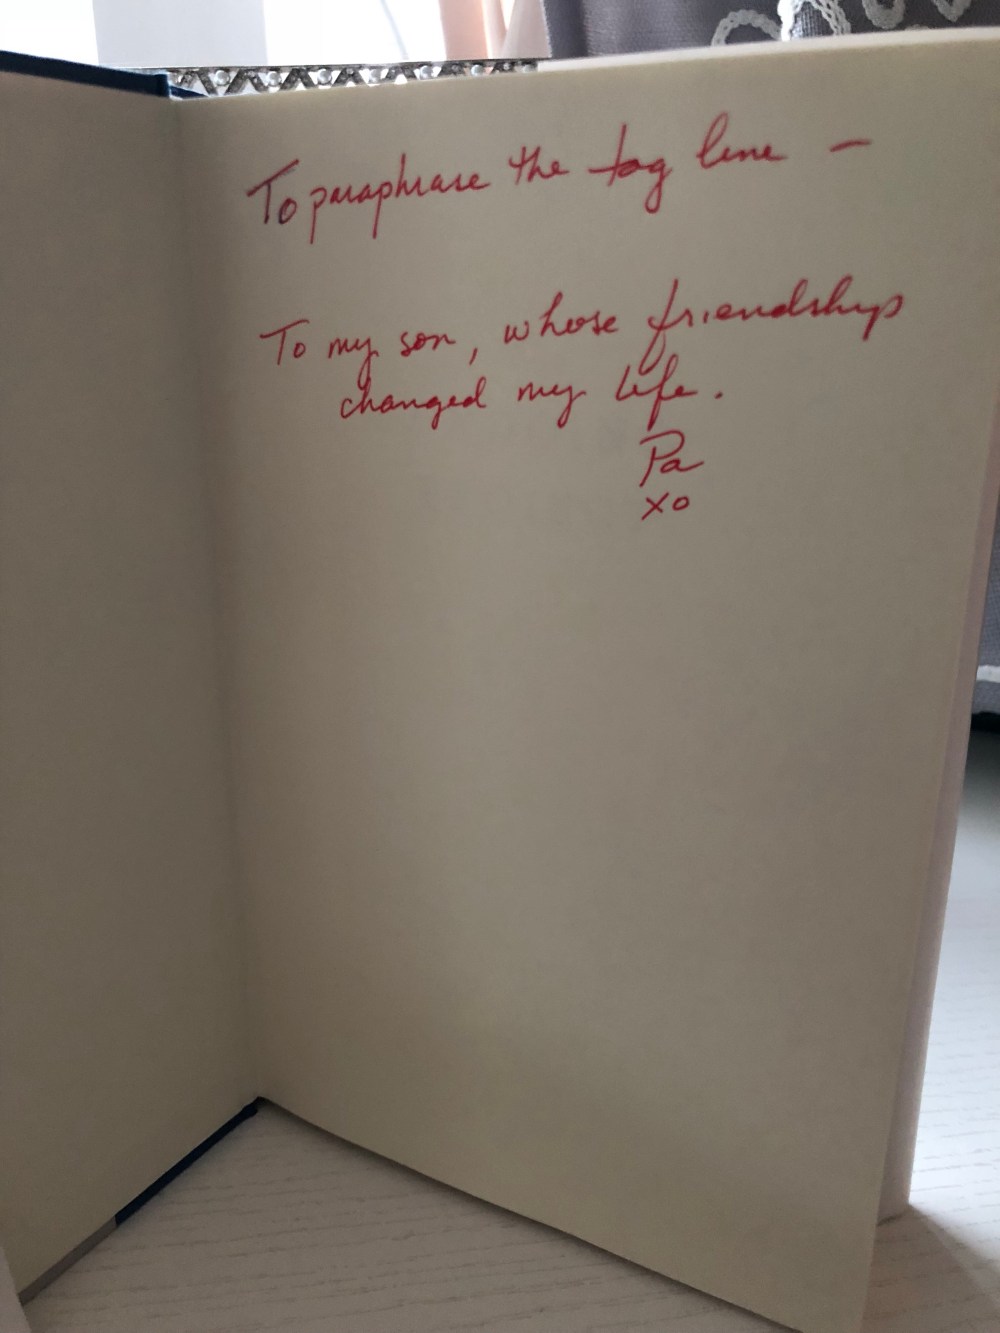 To paraphrase the tag line —
To my son, whose friendship
changed my life.
Pa
xo